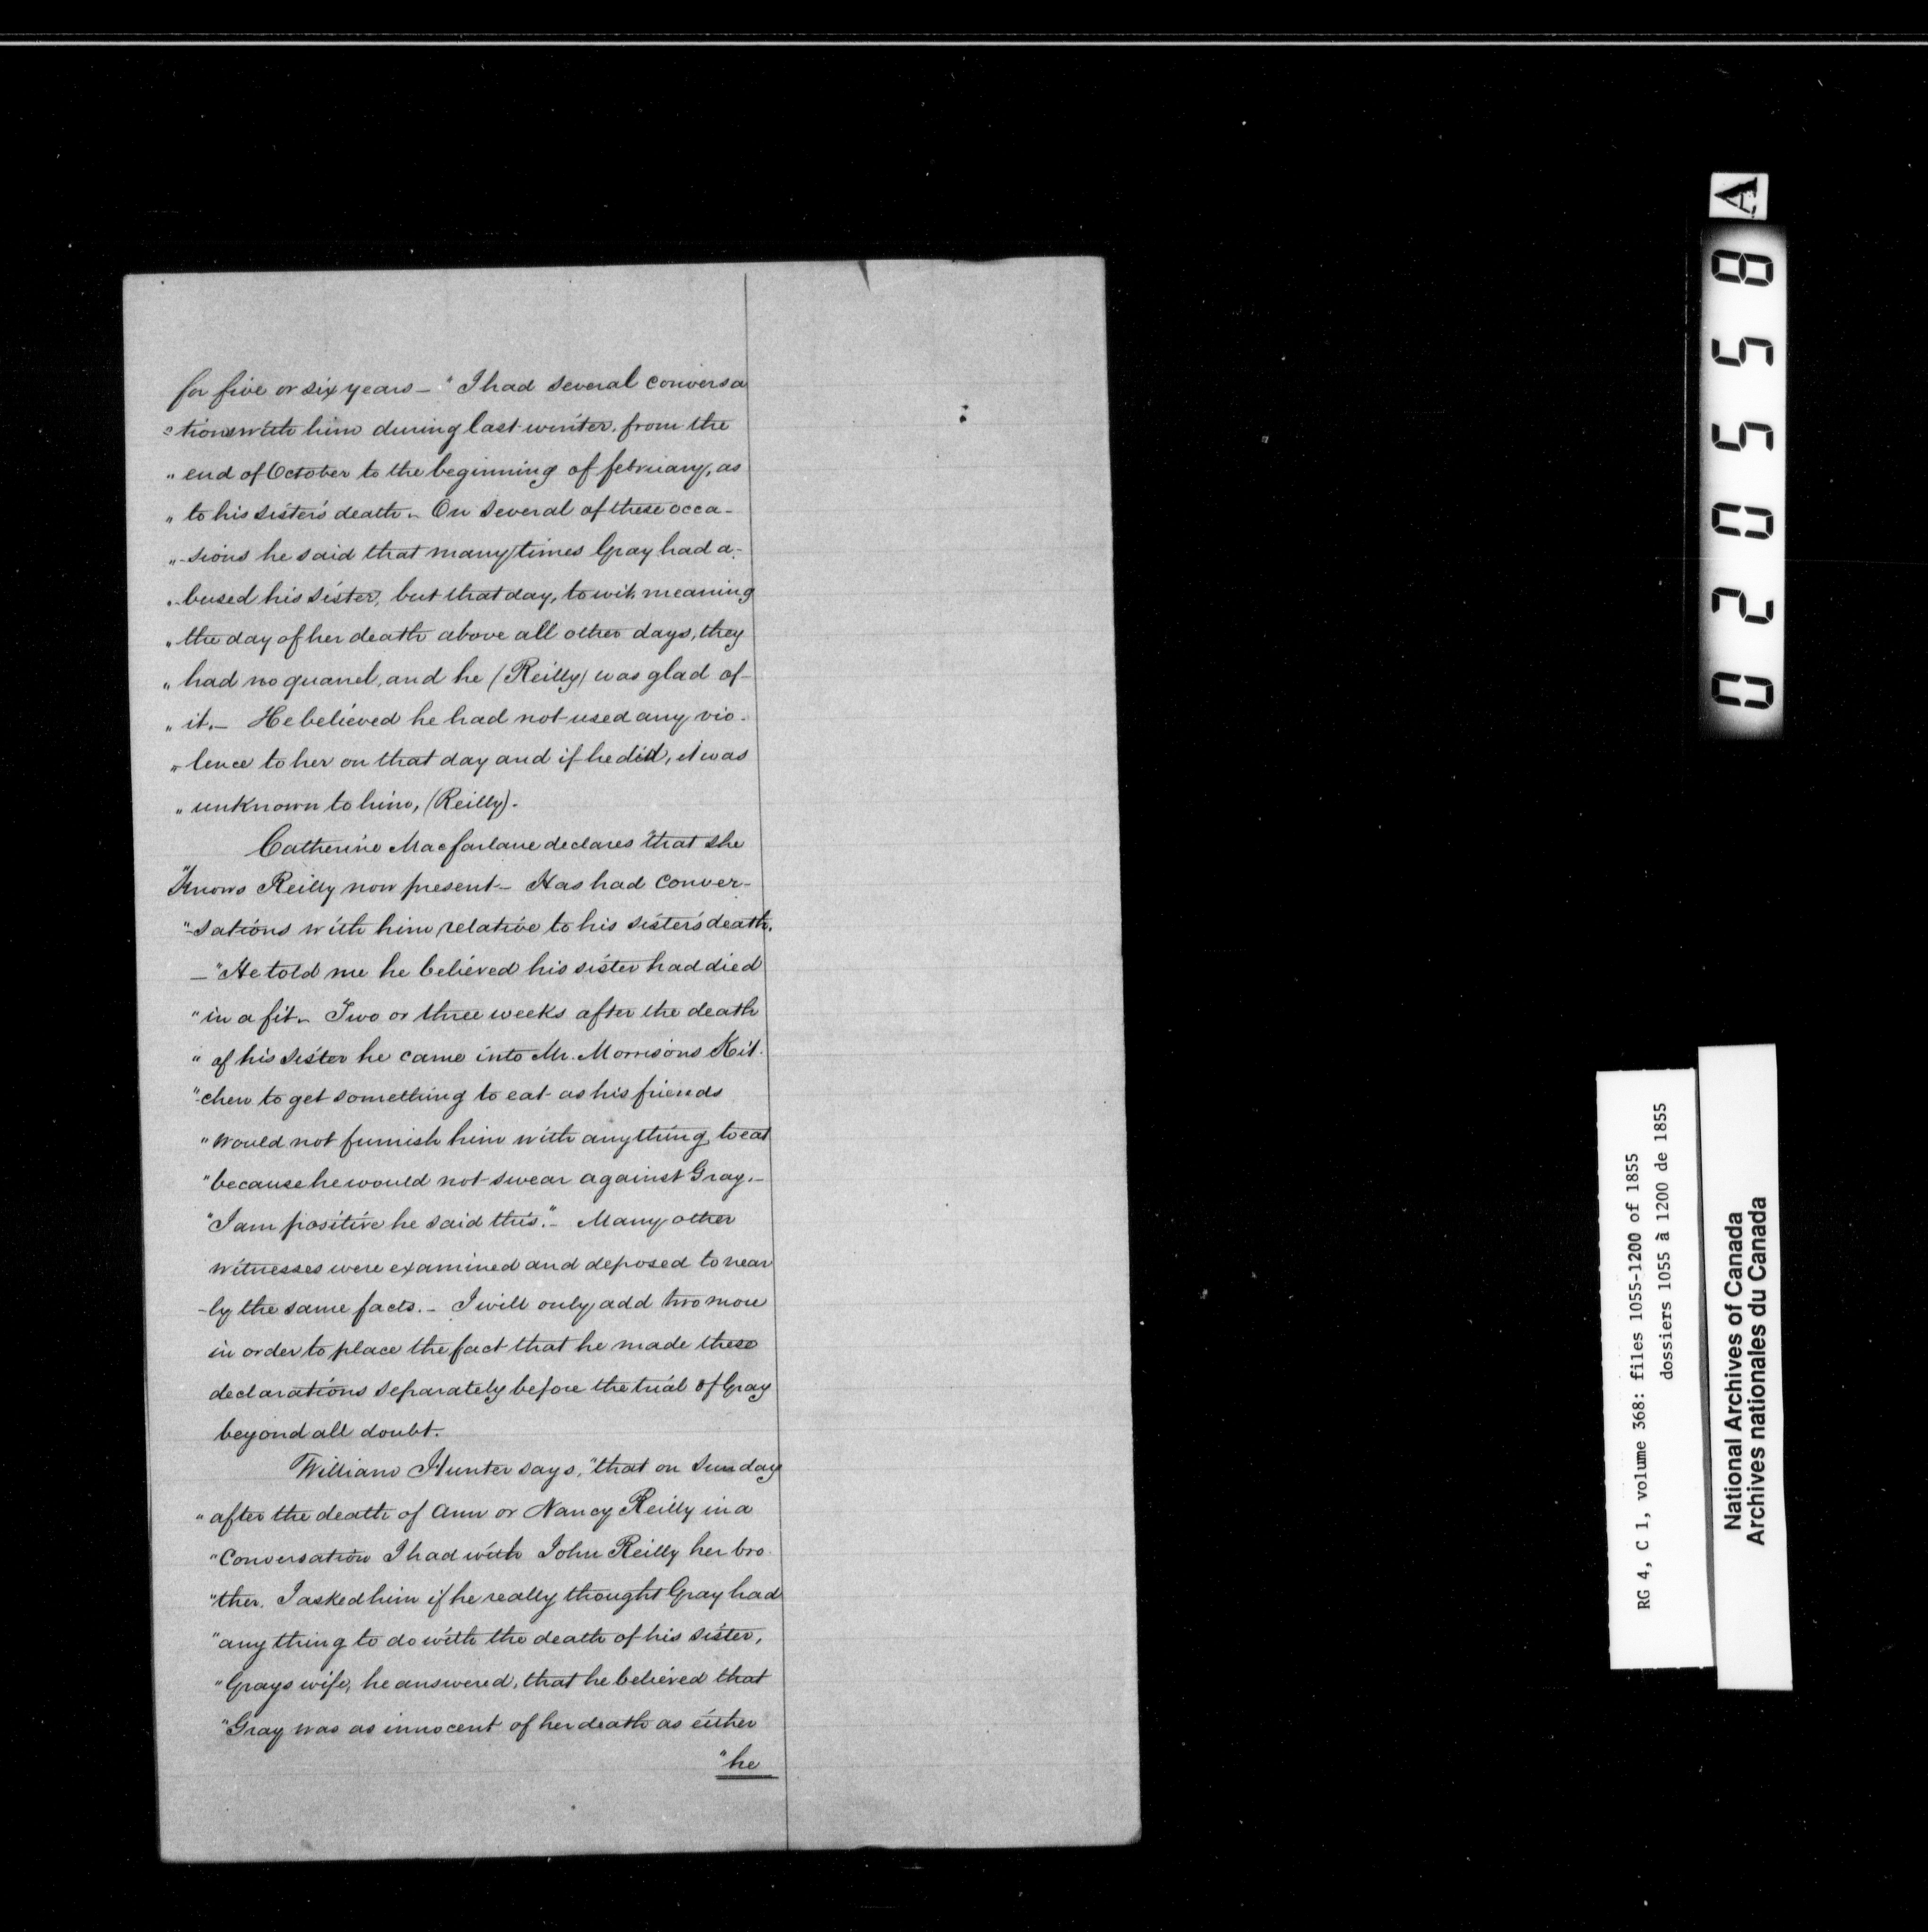 for five or six years – "I had several conversa
"tions with him during last winter, from the
" end of October to the beginning of february, as
" to his sister's death. – On several of these occa-
"-sions he said that many times Gray had a-
"-bused his sister, but that day, to wit, meaning
" the day of her death above all other days, they
" had no quarrel, and he (Reilly) was glad of
" it. – He believed he had not used any vio-
" lence to her on that day and if he did, it was
" unknown to him, (Reilly).
Catherine Macfarlane declares "that she
"Knows Reilly now present – Has had conver-
"-sations with him relative to his sister's death.
– "He told me he believed his sister had died
" in a fit. – Two or three weeks after the death
" of his sister he came into Mr. Morrisons Kit-
"-chen to get something to eat as his friends
" would not furnish him with anything to eat
" because he would not swear against Gray. –
"I am positive he said this." – Many other
witnesses were examined and deposed to near
-ly the same facts. – I will only add two more
in order to place the fact that he made these
declarations separately before the trial of Gray
beyond all doubt.
William Hunter says, "that on Sunday
" after the death of Ann or Nancy Reilly in a
" Conversation I had with John Reilly her bro-
"ther. I asked him if he really thought Gray had
" any thing to do with the death of his sister,
" Grays wife, he answered, that he believed that
" Gray was as innocent of her death as either
"he
A
020558
RG 4, C 1, volume 368: files 1055-1200 of 1855
dossiers 1055 à 1200 de 1855
National Archives of Canada
Archives nationales du Canada